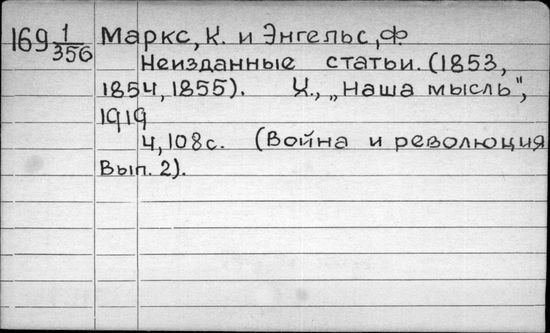 169 1/356 Маркс, К. и Энгельс, Ф
Неизданные статьи. (1853,
1854, 1855). Х., „Наша мысль",
1919
4, 108с. (Война и революция
Вып. 2).